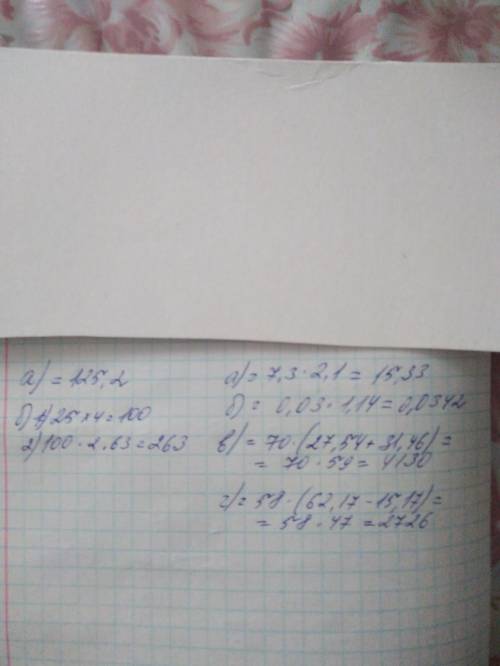 а) = 125,2
б) 1) 25 × 4 = 100
2) 100 · 2.63 = 263
а) = 7,3 · 2,1 = 15,33
б) = 0,03 · 1,14 = 0,0342
в) = 70 · (27,54 + 31,46) =
= 70 · 59 = 4130
г) = 58 · (62,17 - 15,17) =
= 58 · 47 = 2726